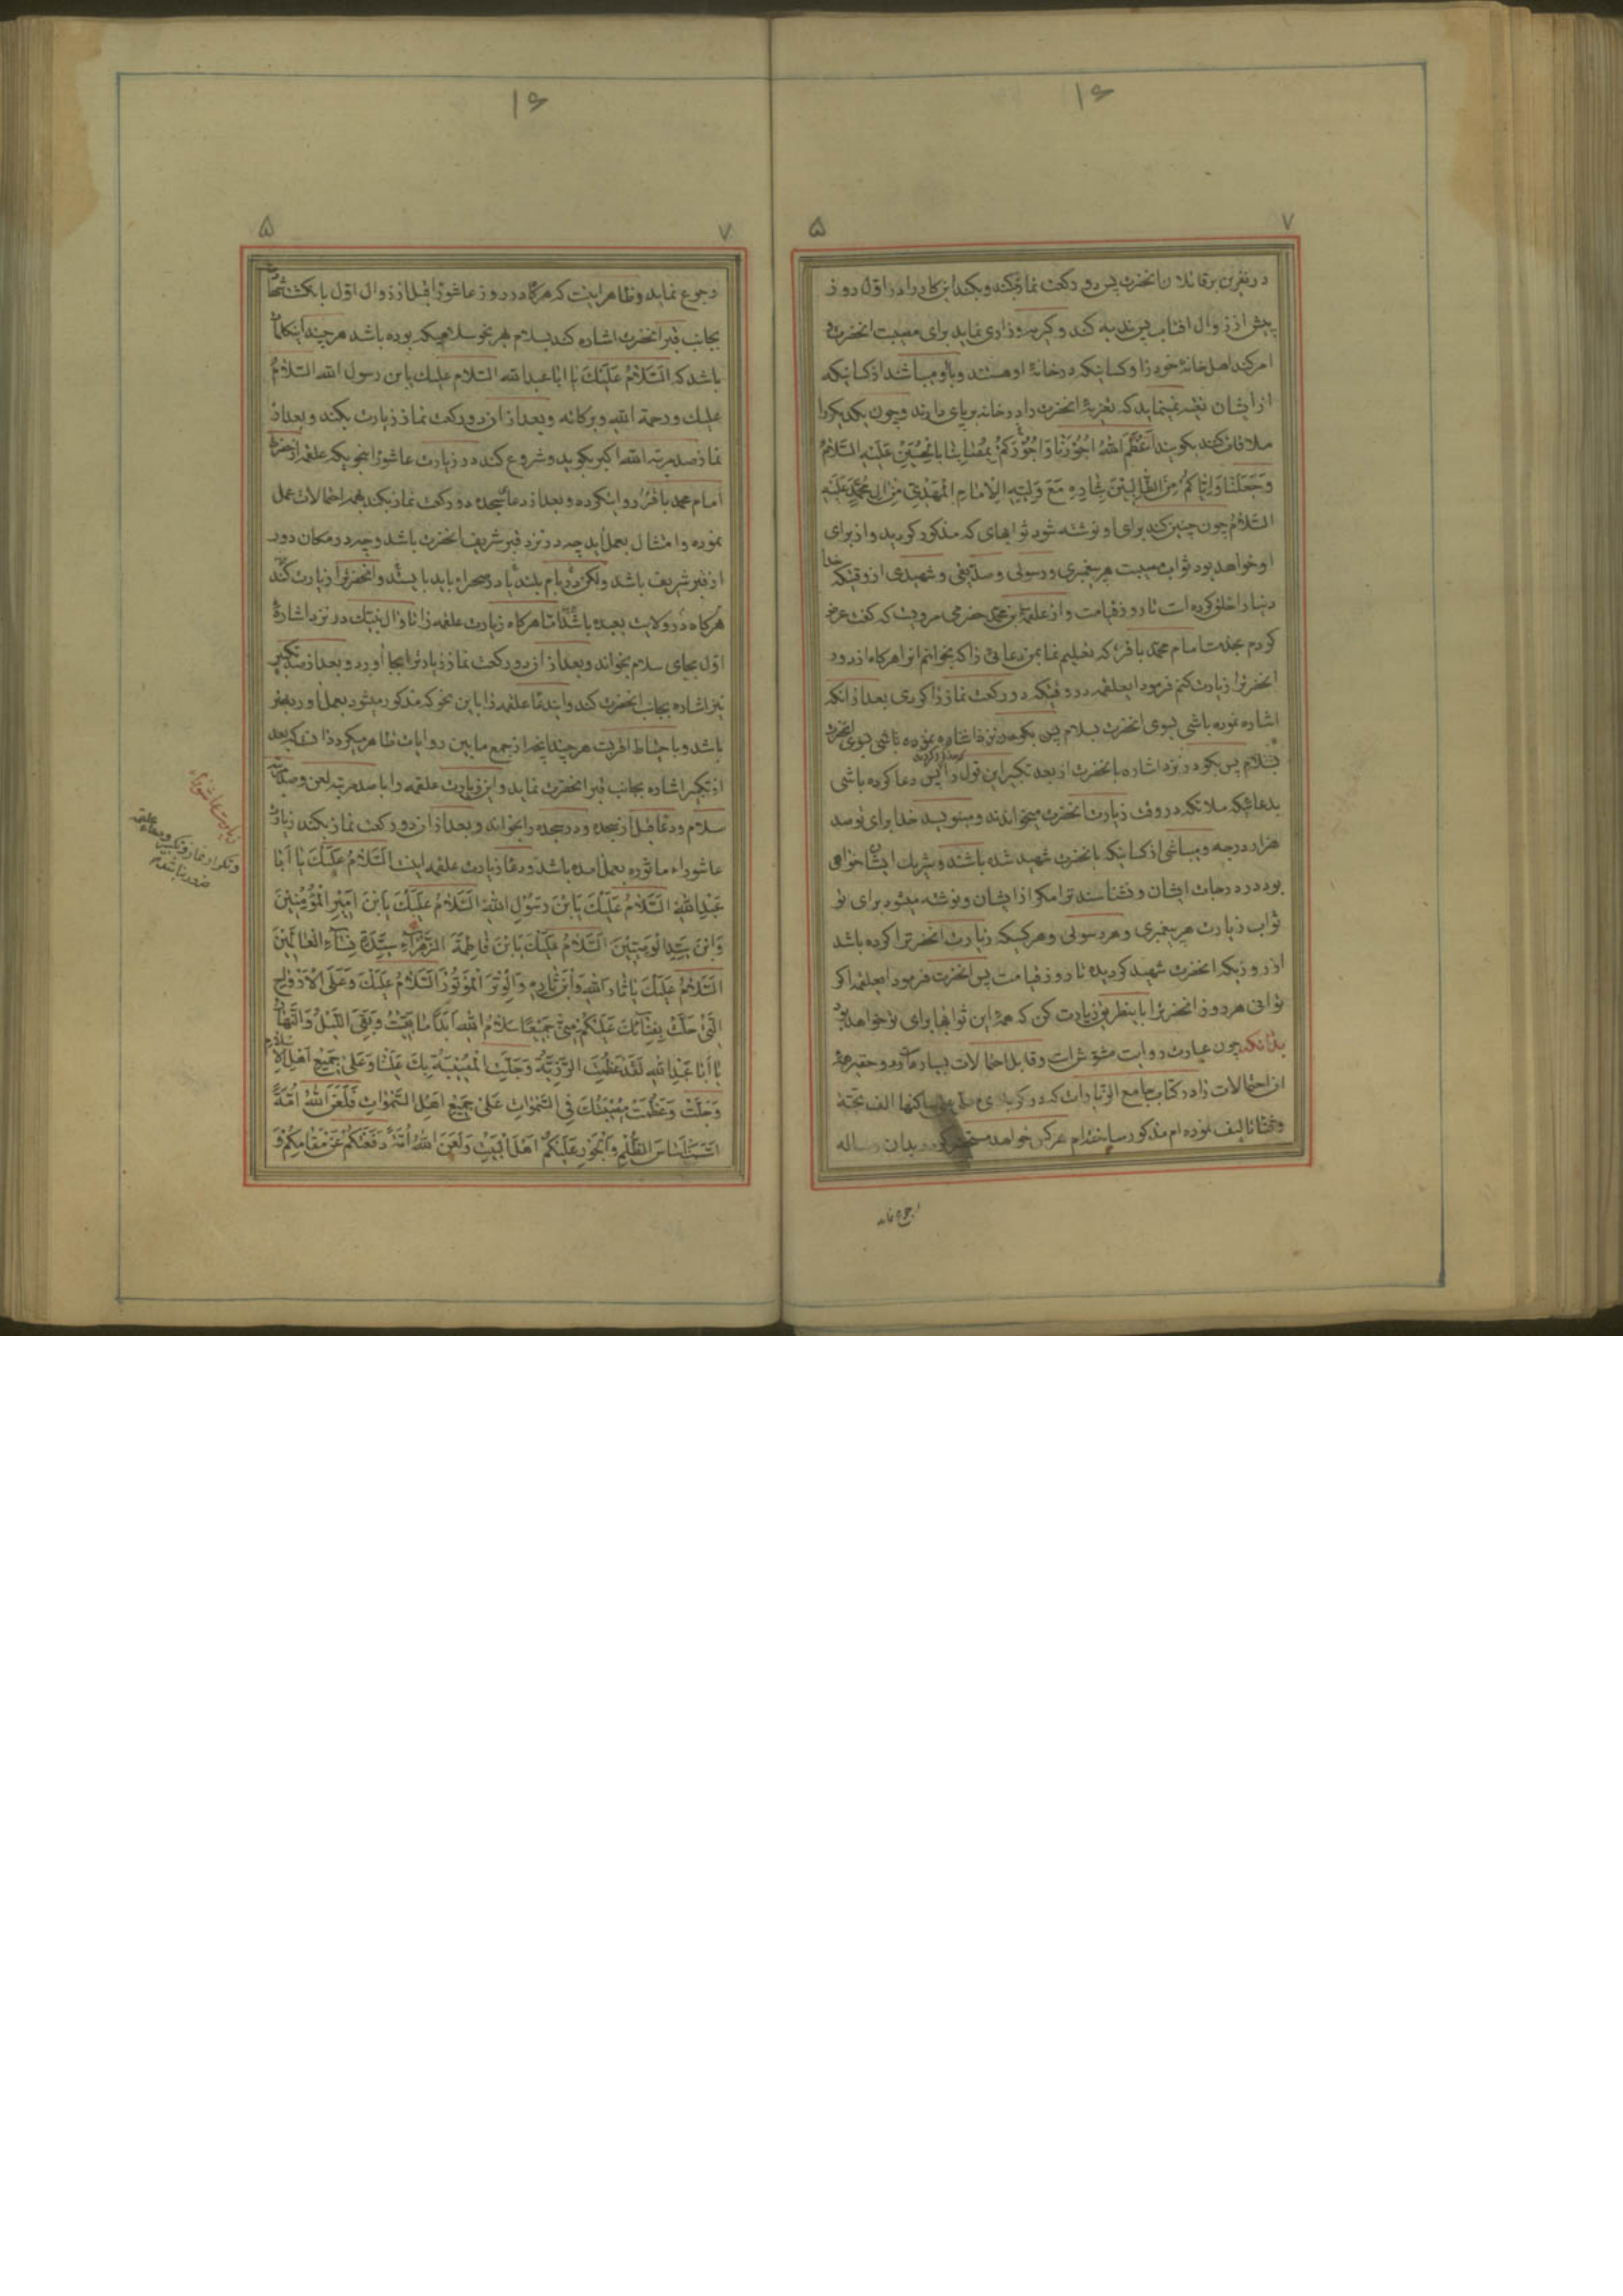 ۱۶
۷
۵
در نفرین بر قاتلان انحضرت پس دو رکعت نماز بکند و بکند این کار را در اول روز
پیش از زوال افتاب پس ندبه کند و کریه و زاری نماید برای مصیبت انحضرت و
امر کند اهل خانهٔ خود را و کسانیکه در خانهٔ او هستند و با او میباشند از کسانیکه
از ایشان تقیه نمینماید که تعزیهٔ انحضرت را در خانه برپای دارند و چون یکدیکر را
ملاقات کنند بکویند اَعْظَمَ اللّهُ اُجُوْرَنا وَ اُجُوْرَکُمْ بِمُصٰابِنا بِالْحُسَیْنِ عَلَیْهِ السَّلامُ
وَ جَعَلَنٰا وَ اِیّٰاکُمْ مِنَ الطّٰالِبینَ بِثٰارِهِ مَعَ وَلِیِّهِ الْاِمٰامِ الْمَهْدِیِّ مِنْ الِ مُحَمَّدٍ عَلَیْهِ
السَّلامُ چون چنین کند برای او نوشته شود ثوابهای که مذکور کردید و از برای
او خواهد بود ثواب مصیبت هر پیغمبری و رسولی و صدیقی و شهیدی از وقتیکه خدا
دنیا را خلق کرده است تا روز قیامت و از علقمة بن محمد حضرمی مرویست که کفت عرض
کردم بخدمت امام محمد باقر که تعلیم نما بمن دعائی را که بخوانم انرا هرکاه از دور
انحضرترا زیارت کنم فرمود ایعلقمه در وقتیکه دو رکعت نماز را کردی بعد از انکه
اشاره نموده باشی بسوی انحضرت بسلام پس بکو در نزد اشاره نموده باشی بسوی انحضرت
بسلام پس بکو در نزد اشاره بانحضرت از بعد تکبیر این قول را پس دعا کرده باشی
بدعائیکه ملائکه در وقت زیارت انحضرت میخوانند و مینویسد خدا برای تو صد
هزار درجه و میباشی از کسانیکه بانحضرت شهید شده باشند و شریک ایشان خواهی
بود در درجات ایشان و نشناسند ترا مکر از ایشان و نوشته میشود برای تو
ثواب زیارت هر پیغمبری و هر رسولی و هر کسیکه زیارت انحضرترا کرده باشد
از روزیکه انحضرت شهید کردیده تا روز قیامت پس انحضرت فرمود ایعلقمه اکر
توانی هر روز انحضرترا باینطریق زیارت کن که همهٔ این ثوابها برای تو خواهد بود
بدانکه چون عبارت روایت مشوش است و قابل احتمالات بسیار و حقیر همهٔ
ان احتمالات را در کتاب جامع الزیارات که در کربلای معلی علی ساکنها الف تحیة
و ثنا تالیف نموده ام مذکور ساخته ام هرکس خواهد بدان رساله
رجوع نماید
۱۶
۷
۵
رجوع نماید و ظاهر اینست که هرکاه در روز عاشورا قبل از زوال اول بانکشت شهادت
بجانب قبر انحضرت اشاره کند بسلام بهر نحو سلامیکه بوده باشد هرچند اینکلمات
باشد که اَلسَّلامُ عَلَیْکَ یا اباعبدالله السلام علیک یابن رسول الله السَّلامُ
علیک و رحمة الله و برکاته و بعد از ان دو رکعت نماز زیارت بکند و بعد از
نماز صد مرتبه الله اکبر بکوید و شروع کند در زیارت عاشورا بنحویکه علقمه از حضرت
امام محمد باقر روایتکرده و بعد از دعای سجده دو رکعت نماز بکند بهمه احتمالات عمل
نموده و امتثال بعمل اید چه در نزد قبر شریف انحضرت باشد و چه در مکان دور
از قبر شریف باشد ولکن در بام بلند یا در صحرا باید بایستد و انحضرترا زیارت کند
هرکاه در ولایت بعیده باشد اما هرکاه زیارت علقمه را تا وال بیتک در نزد اشارهٔ
اول بجای سلام بخواند و بعد از ان دو رکعت نماز زیادترا بجا آورد و بعد از صد تکبیر
نیز اشاره بجانب انحضرت کند و ایندعا علقمه را باین نحو که مذکور میشود بعمل اورد بهتر
باشد و باحتیاط اقربست هرچند انچه از جمع مابین روایات ظاهر میکردد انستکه بعد
از تکبیر اشاره بجانب قبر انحضرت نماید و این زیارت علقمه را با صد مرتبه لعن و صد مرتبه
سلام و دعا قبل از سجده و در سجده را بخواند و بعد از ان دو رکعت نماز بکند زیارت
عاشوراء ماثوره بعمل امده باشد و دعا زیارت علقمه اینست اَلسَّلامُ عَلَیْکَ یا اَبا
عَبْدِ اللهِ اَلسَّلامُ عَلَیْکَ یَابْنَ رَسُوْلِ اللّهِ اَلسَّلامُ عَلَیْکَ یَابْنَ اَمِیْرِ الْمُؤْمِنِیْنَ
وَابْنَ سَیِّدِ الْوَصِیّیْنَ اَلسَّلامُ عَلَیْکَ یَابْنَ فٰاطِمَةَ الزَّهْرٰاءِ سَیِّدَةِ نِسٰاءِ الْعٰالَمِیْنَ
اَلسَّلامُ عَلَیْکَ یا ثٰارَ اللهِ وَابْنَ ثٰارِهِ وَالْوِتْرَ الْمَوْتُوْرَ اَلسَّلامُ عَلَیْکَ وَعَلَی الْاَرْوٰاحِ
الَّتِیْ حَلَّتْ بِفِنٰائِکَ عَلَیْکُمْ مِنّیْ جَمِیْعًا سَلٰامُ اللهِ اَبَدًا مٰا بَقِیْتُ وَ بَقِیَ اللَّیْلُ وَالنَّهٰارُ
یٰا اَبٰا عَبْدِ اللهِ لَقَدْ عَظُمَتِ الرَّزِیَّةُ وَ جَلَّتِ الْمُصِیْبَةُ بِکَ عَلَیْنٰا وَعَلیٰ جَمِیْعِ اَهْلِ الْاِسْلَامِ
وَ جَلَّتْ وَعَظُمَتْ مُصِیْبَتُکَ فِی السَّمٰوٰاتِ عَلیٰ جَمِیْعِ اَهْلِ السَّمٰوٰاتِ فَلَعَنَ اللّهُ اُمَّةً
اَسَّسَتْ اَسٰاسَ الظُّلْمِ وَالْجَوْرِ عَلَیْکُمْ اَهْلَ الْبَیْتِ وَ لَعَنَ اللّهُ اُمَّةً دَفَعَتْکُمْ عَنْ مَقٰامِکُمْ وَ
زیارت عاشوراء